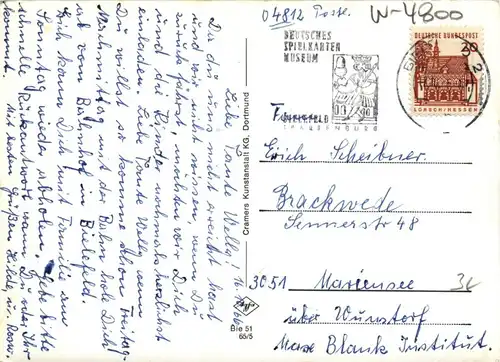 04812 Poste.
W-4800
DEUTSCHES
SPIELKARTEN
MUSEUM
BIELEFELD
DEUTSCHE BUNDESPOST
20
LORSCH/HESSEN
2
Erich Scheibner.
Brackwede
Sennerstr 48
3051 Mariensee
über Wunstorf
Max Blank Institut.
34
Cramers Kunstanstalt KG, Dortmund
Agfa
Bie 51
65/5
Liebe Tante Welly!
Da du uns nicht erreicht hast
und wir nicht wissen, wann Du
zurück fährst, möchten wir Dich
und die Kinder nochmals herzlichst
einladen. Liebe Tante Welly wenn
Du willst so komme schon Freitag-
Nachmittag mit der Bahn hole Dich
vom Bahnhof in Bielefeld
Erich kann Dich mit Familie am
Sonntag wieder abholen. Gebe bitte
schnelle Rückantwort wann Du oder Ihr
kommt. Mit herzlichen Grüßen Hilde,